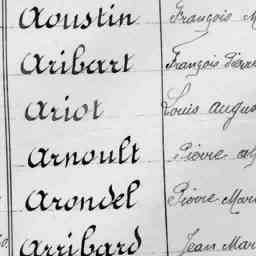 Aoustin François M
Aribart François Pierre
Ariot Louis Augus
Arnoult Pierre
Arondel Pierre Mari
Arribard Jean Mar